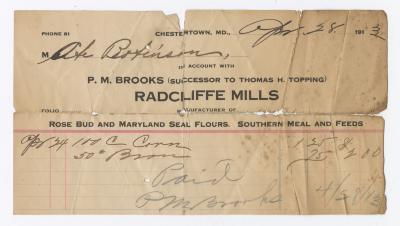 PHONE 81
CHESTERTOWN, MD., Apr 28 1913
M Abe Robinson,
IN ACCOUNT WITH
P. M. BROOKS (SUCCESSOR TO THOMAS H. TOPPING)
RADCLIFFE MILLS
FOLIO MANUFACTURER OF
ROSE BUD AND MARYLAND SEAL FLOURS. SOUTHERN MEAL AND FEEDS
Apr 24 100 C Corn 1 35
50 " Bran 75 2 00
Paid 4/28/13
P M Brooks